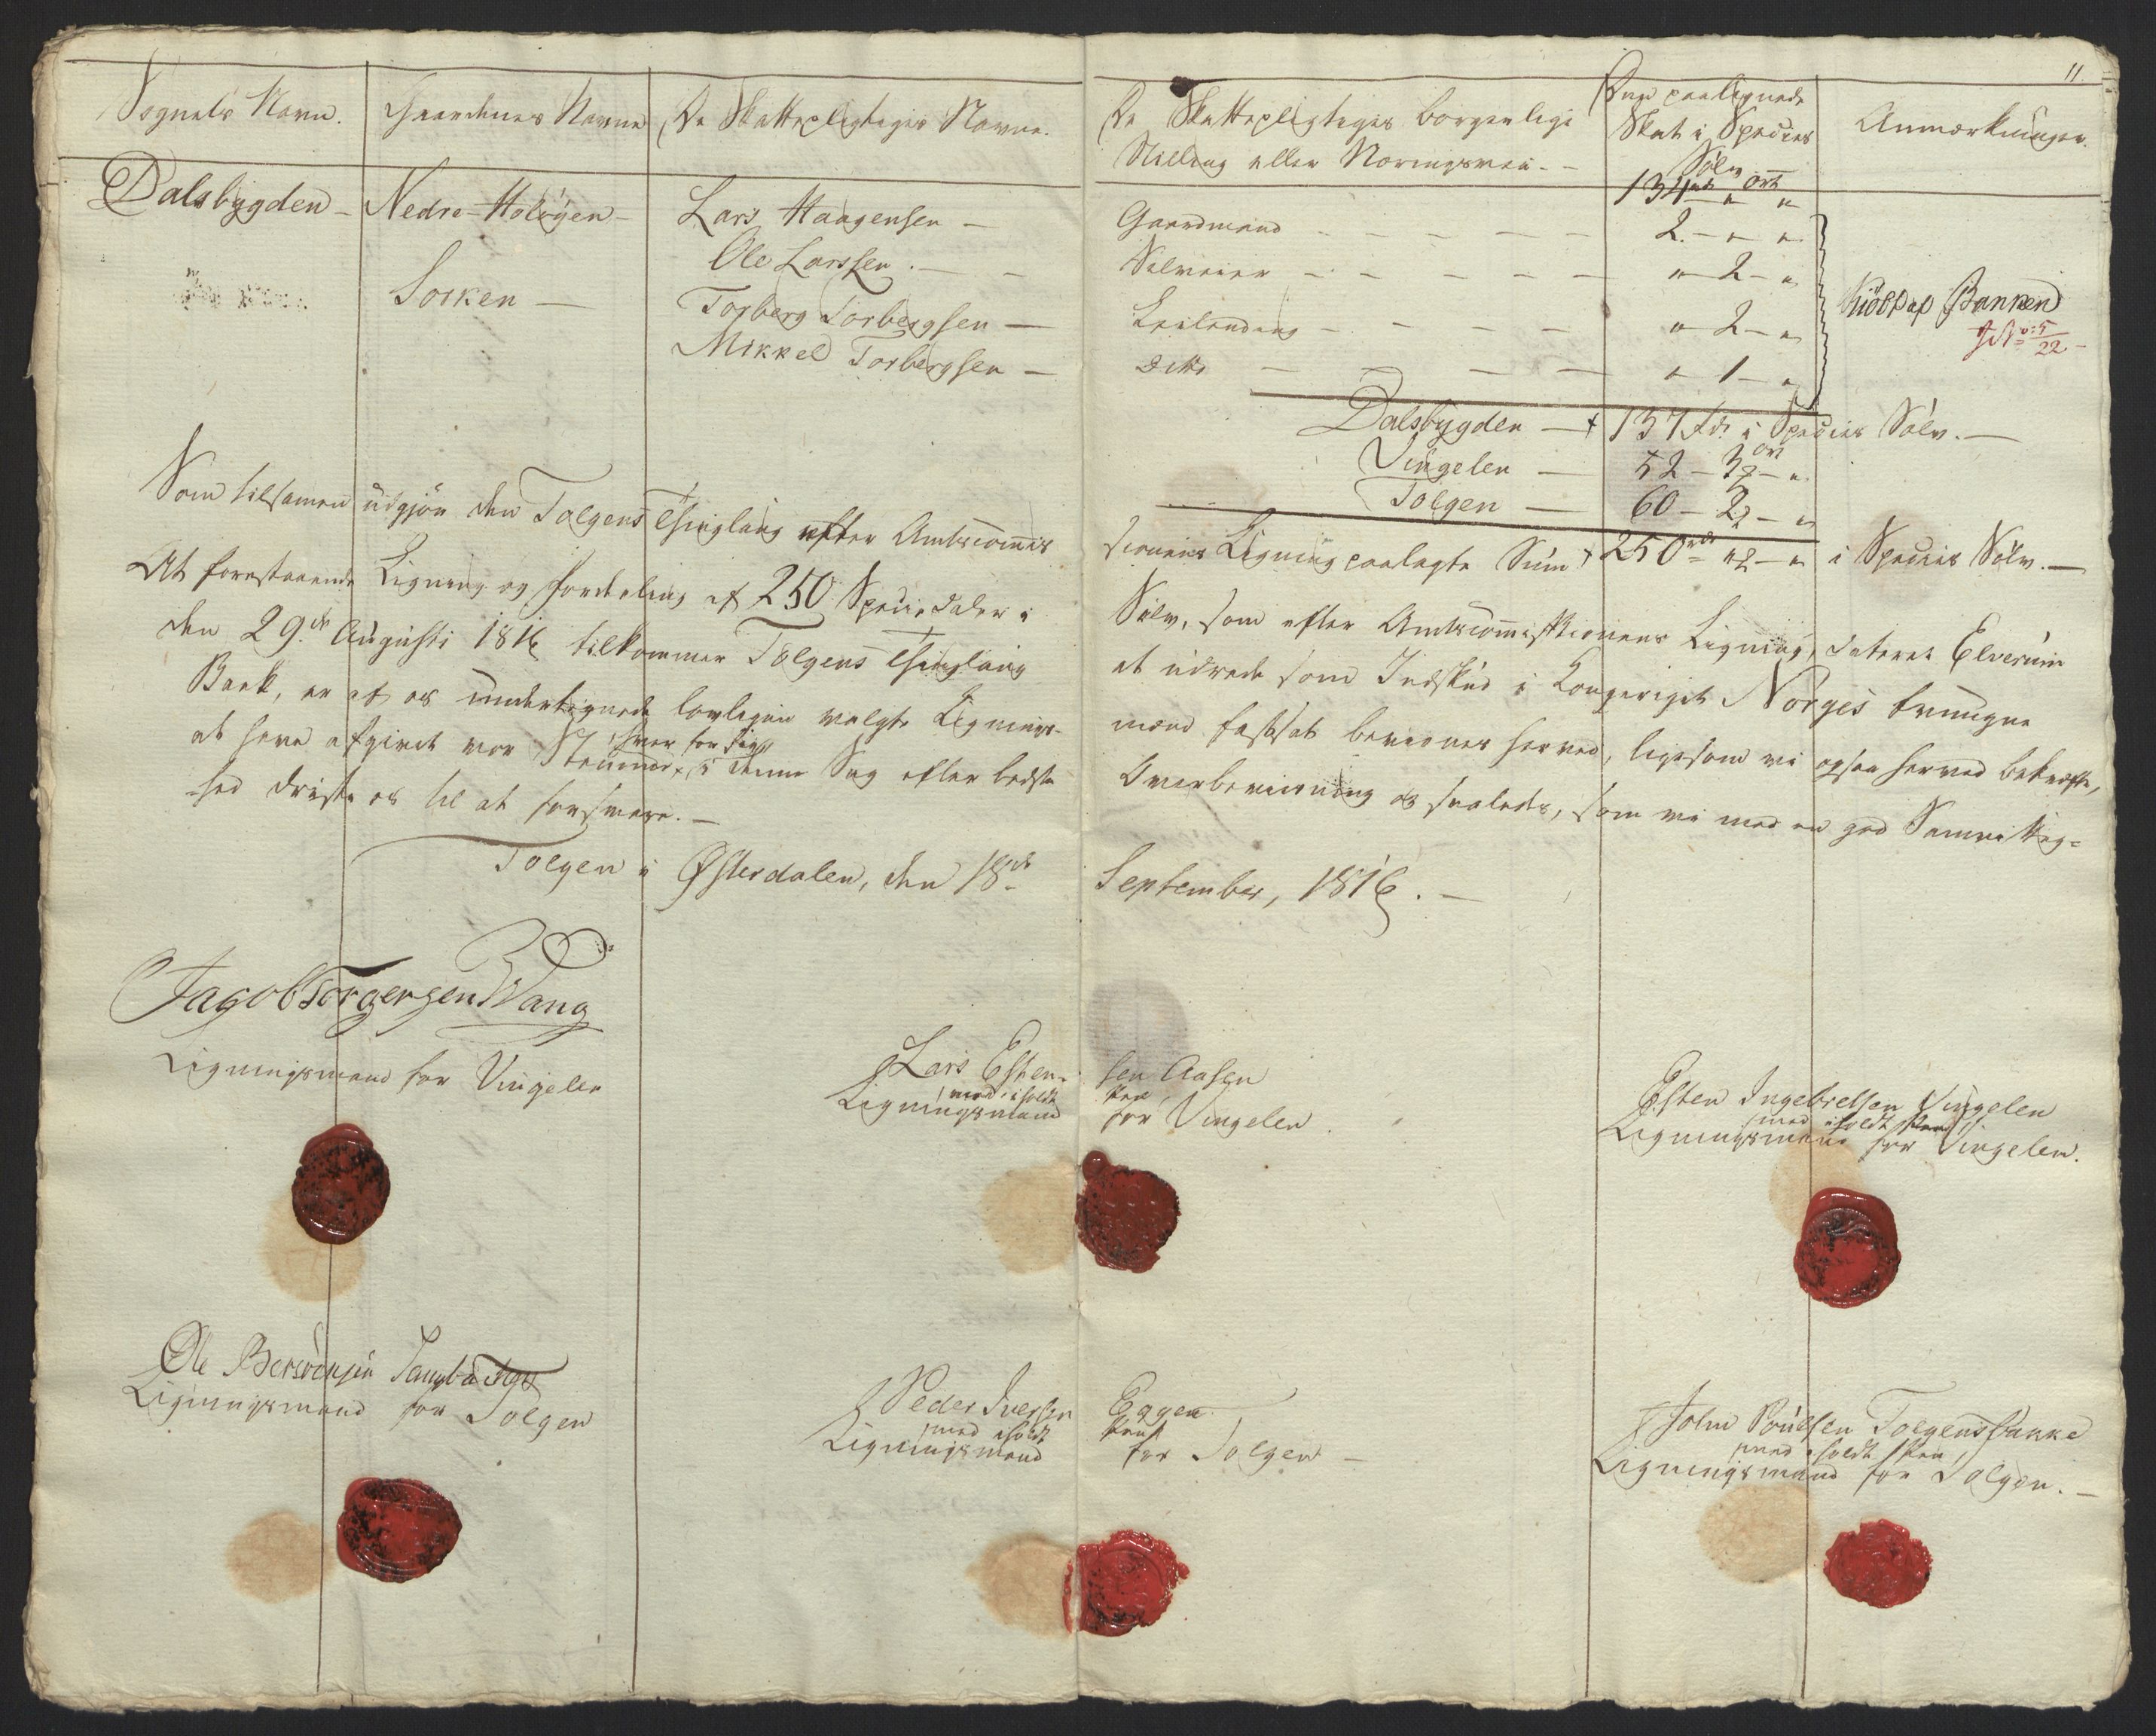 11.
Sognets Navn. Gaardenes Navne De Skattepligtiges Navne. De Skattepligtiges borgerlige Stilling eller Næringsvei. - Den paalignede Skat i Species Sølv Anmærkninger.
134 ort
Dalsbygden - Nedre-Holøyen - Lars Haagensen - Gaardmand - - - - - 2. - " - "
Ole Larssen. - - Selveier - - - - - " - 2 - "
Sorken - Torberg Torbergsen - Leilending - - - - " - 2 - " Banken
Mikkel Torbergsen - Ditto - - - - " - 1 - "
No 5/22 -
Dalsbygden - 137 i Species Sølv. -
Vingelen - 52 - 3 - "
Tolgen - 60 - 2 - "
Som tilsamen udgjør den Tolgens Thinglaug efter Amtscommis
sionens Ligning paalagte Sum 250 - i Species Sølv. -
At forestaaende Ligning og Fordeling af 250 Speciedaler i
Sølv, som efter Amtscommissionens Ligning, dateret Elverum
den 29de Augusti 1816 tilkommer Tolgens Thinglaug
at udrede som Indskud i Kongeriget Norges tvungne
Bank, er af os undertegnede lovligen valgte Lignings-
mænd fastsat bevidnes herved, ligesom vi ogsaa herved bekræfte,
at have afgivet vor Stemme, hver for sig, i denne Sag efter bedste
Overbeviisning og saaledes, som vi med en god Samvittig-
hed driste os til at forsvare. -
Tolgen i Østerdalen, den 18de September, 1816. -
Jagob Torgersen Wang
Ligningsmand for Vingelen
Lars Estensen Aasen
med iholdt Pen
Ligningsmand for Vingelen.
Esten Ingebretsen Vingelen
med iholdt Pen
Ligningsmand for Vingelen.
Ole
Ligningsmand for Tolgen
Peder Iversen Eggen
med iholdt Pen
Ligningsmand for Tolgen -
John Poulsen Tolgensbakke
med iholdt Pen
Ligningsmand for Tolgen. -